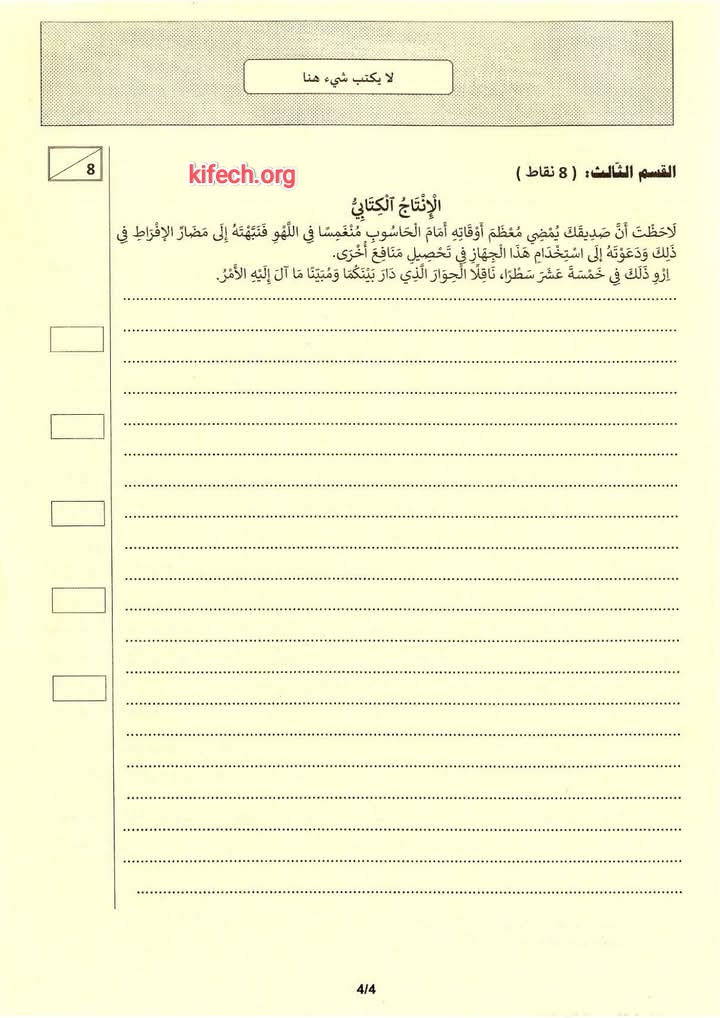 لا يكتب شيء هنا
8
kifech.org
القسم الثّالث: ( 8 نقاط )
الْإِنْتَاجُ الْكِتَابِيُّ
لَاحَظْتَ أَنَّ صَدِيقَكَ يُمْضِي مُعْظَمَ أَوْقَاتِهِ أَمَامَ الْحَاسُوبِ مُنْغَمِسًا فِي اللَّهْوِ فَنَبَّهْتَهُ إِلَى مَضَارِّ الإِفْرَاطِ فِي
ذَلِكَ وَدَعَوْتَهُ إِلَى اسْتِخْدَامِ هَذَا الْجِهَازِ فِي تَحْصِيلِ مَنَافِعَ أُخْرَى.
اِرْوِ ذَلِكَ فِي خَمْسَةَ عَشَرَ سَطْرًا، نَاقِلًا الْحِوَارَ الَّذِي دَارَ بَيْنَكُمَا وَمُبَيِّنًا مَا آلَ إِلَيْهِ الأَمْرُ.
4/4